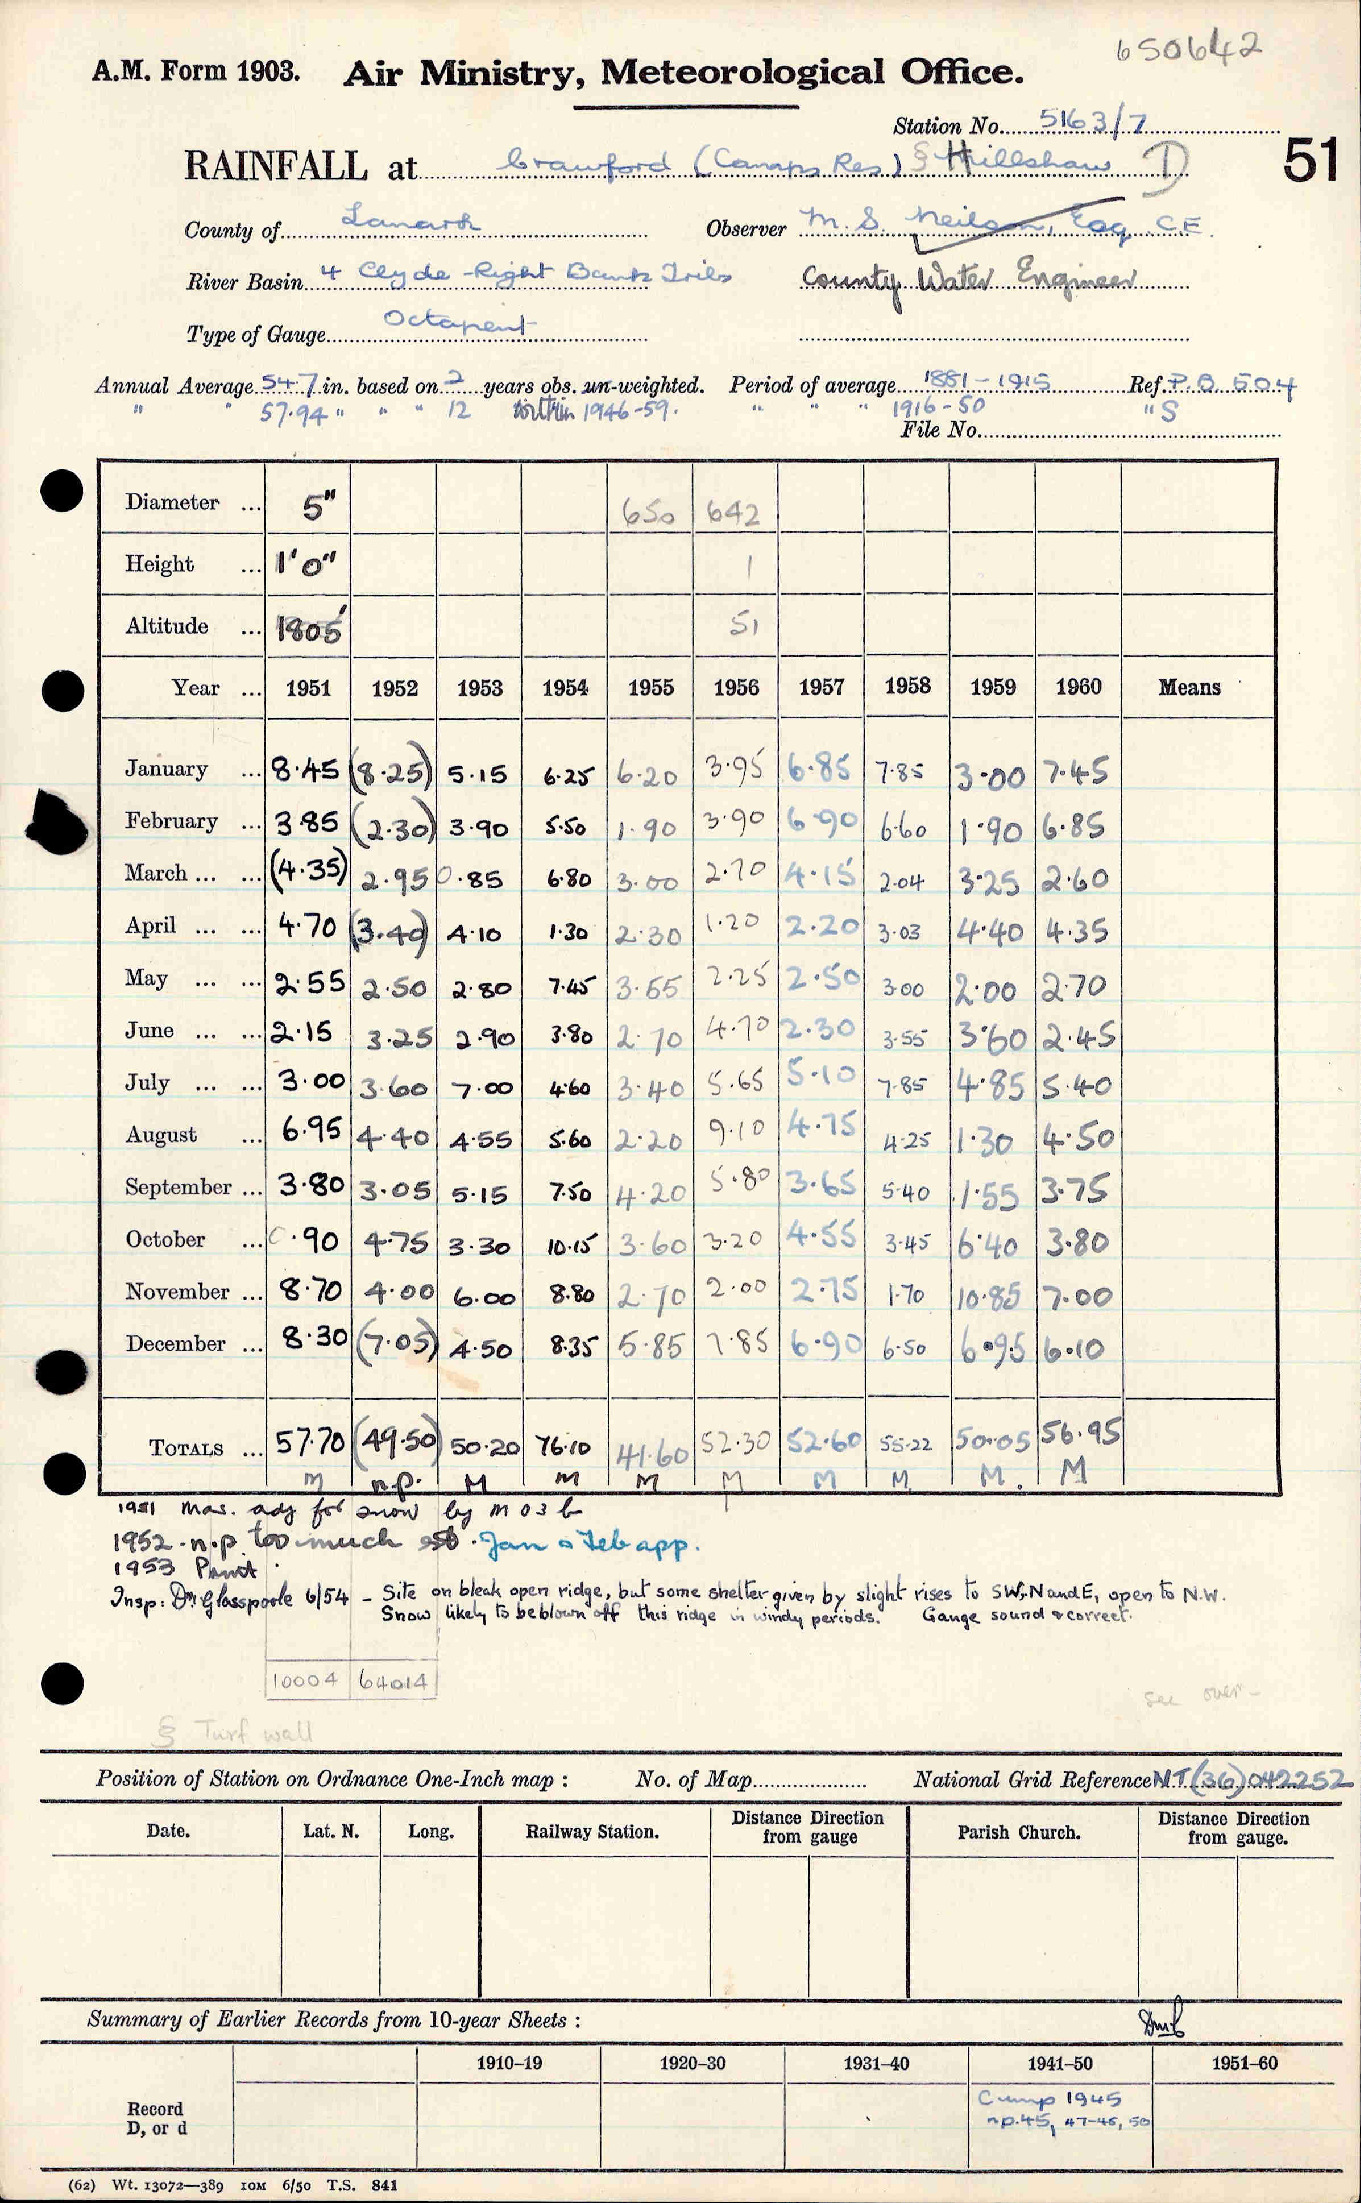 650642
A.M. Form 1903. Air Ministry, Meteorological Office.
Station No. 5163/7
51
RAINFALL at Crawford (Camps Res) § Hillshaw D
County of Lanark Observer M. S. Neilson, Esq. C.E.
River Basin 4 Clyde - Right Bank Tribs County Water Engineer
Type of Gauge Octapent
Annual Average 54.7 in. based on 2 years obs. un-weighted. Period of average 1881-1915 Ref. P.B. 504
" " 57.94 " " " 12 within 1946-59. " " " 1916-50 " S
File No.
Diameter ... 5" 650 642
Height ... 1'0" 1
Altitude ... 1805' 51
Year ... 1951 1952 1953 1954 1955 1956 1957 1958 1959 1960 Means
January ... 8.45 (8.25) 5.15 6.25 6.20 3.95 6.85 7.85 3.00 7.45
February ... 3.85 (2.30) 3.90 5.50 1.90 3.90 6.90 6.60 1.90 6.85
March ... ... (4.35) 2.95 0.85 6.80 3.00 2.70 4.15 2.04 3.25 2.60
April ... ... 4.70 (3.40) 4.10 1.30 2.30 1.20 2.20 3.03 4.40 4.35
May ... ... 2.55 2.50 2.80 7.45 3.55 2.25 2.50 3.00 2.00 2.70
June ... ... 2.15 3.25 2.90 3.80 2.70 4.70 2.30 3.55 3.60 2.45
July ... ... 3.00 3.60 7.00 4.60 3.40 5.65 5.10 7.85 4.85 5.40
August ... 6.95 4.40 4.55 5.60 2.20 9.10 4.75 4.25 1.30 4.50
September ... 3.80 3.05 5.15 7.50 4.20 5.80 3.65 5.40 1.55 3.75
October ... 0.90 4.75 3.30 10.15 3.60 3.20 4.55 3.45 6.40 3.80
November ... 8.70 4.00 6.00 8.80 2.70 2.00 2.75 1.70 10.85 7.00
December ... 8.30 (7.05) 4.50 8.35 5.85 7.85 6.90 6.50 6.95 6.10
TOTALS ... 57.70 (49.50) 50.20 76.10 41.60 52.30 52.60 55.22 50.05 56.95
M n.p. M M M M M M. M. M
1951 Mar. adj for snow by M O 3 b
1952 - n.p. too much est. Jan & Feb app.
1953
Insp: Dr Glasspoole 6/54 - Site on bleak open ridge, but some shelter given by slight rises to SW, N and E, open to N.W.
Snow likely to be blown off this ridge in windy periods. Gauge sound & correct.
10004 64014
see over -
§ Turf wall
Position of Station on Ordnance One-Inch map : No. of Map National Grid Reference N.T. (36) 042252
Date. Lat. N. Long. Railway Station. Distance Direction from gauge Parish Church. Distance Direction from gauge.
Summary of Earlier Records from 10-year Sheets :
1910–19 1920–30 1931–40 1941–50 1951–60
Record
D, or d
Comp 1945
n.p. 45, 47-48, 50
(62) Wt. 13072—389 10M 6/50 T.S. 841